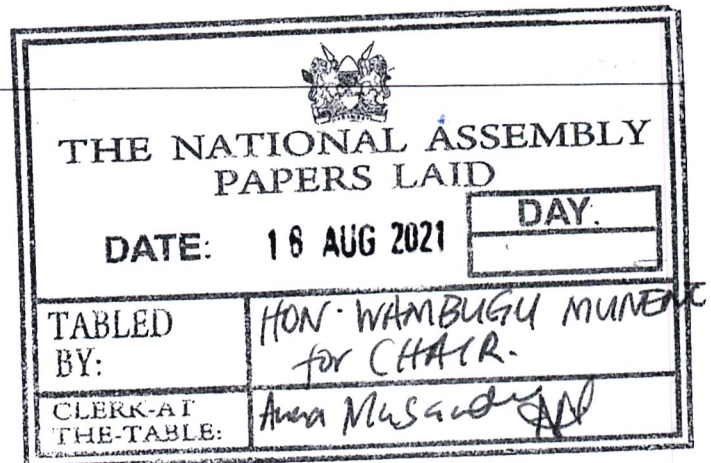 THE NATIONAL ASSEMBLY
PAPERS LAID
DATE: 18 AUG 2021 DAY.
TABLED BY: HON. WAMBUGU MUNENE
for CHAIR.
CLERK-AT THE-TABLE: Anna